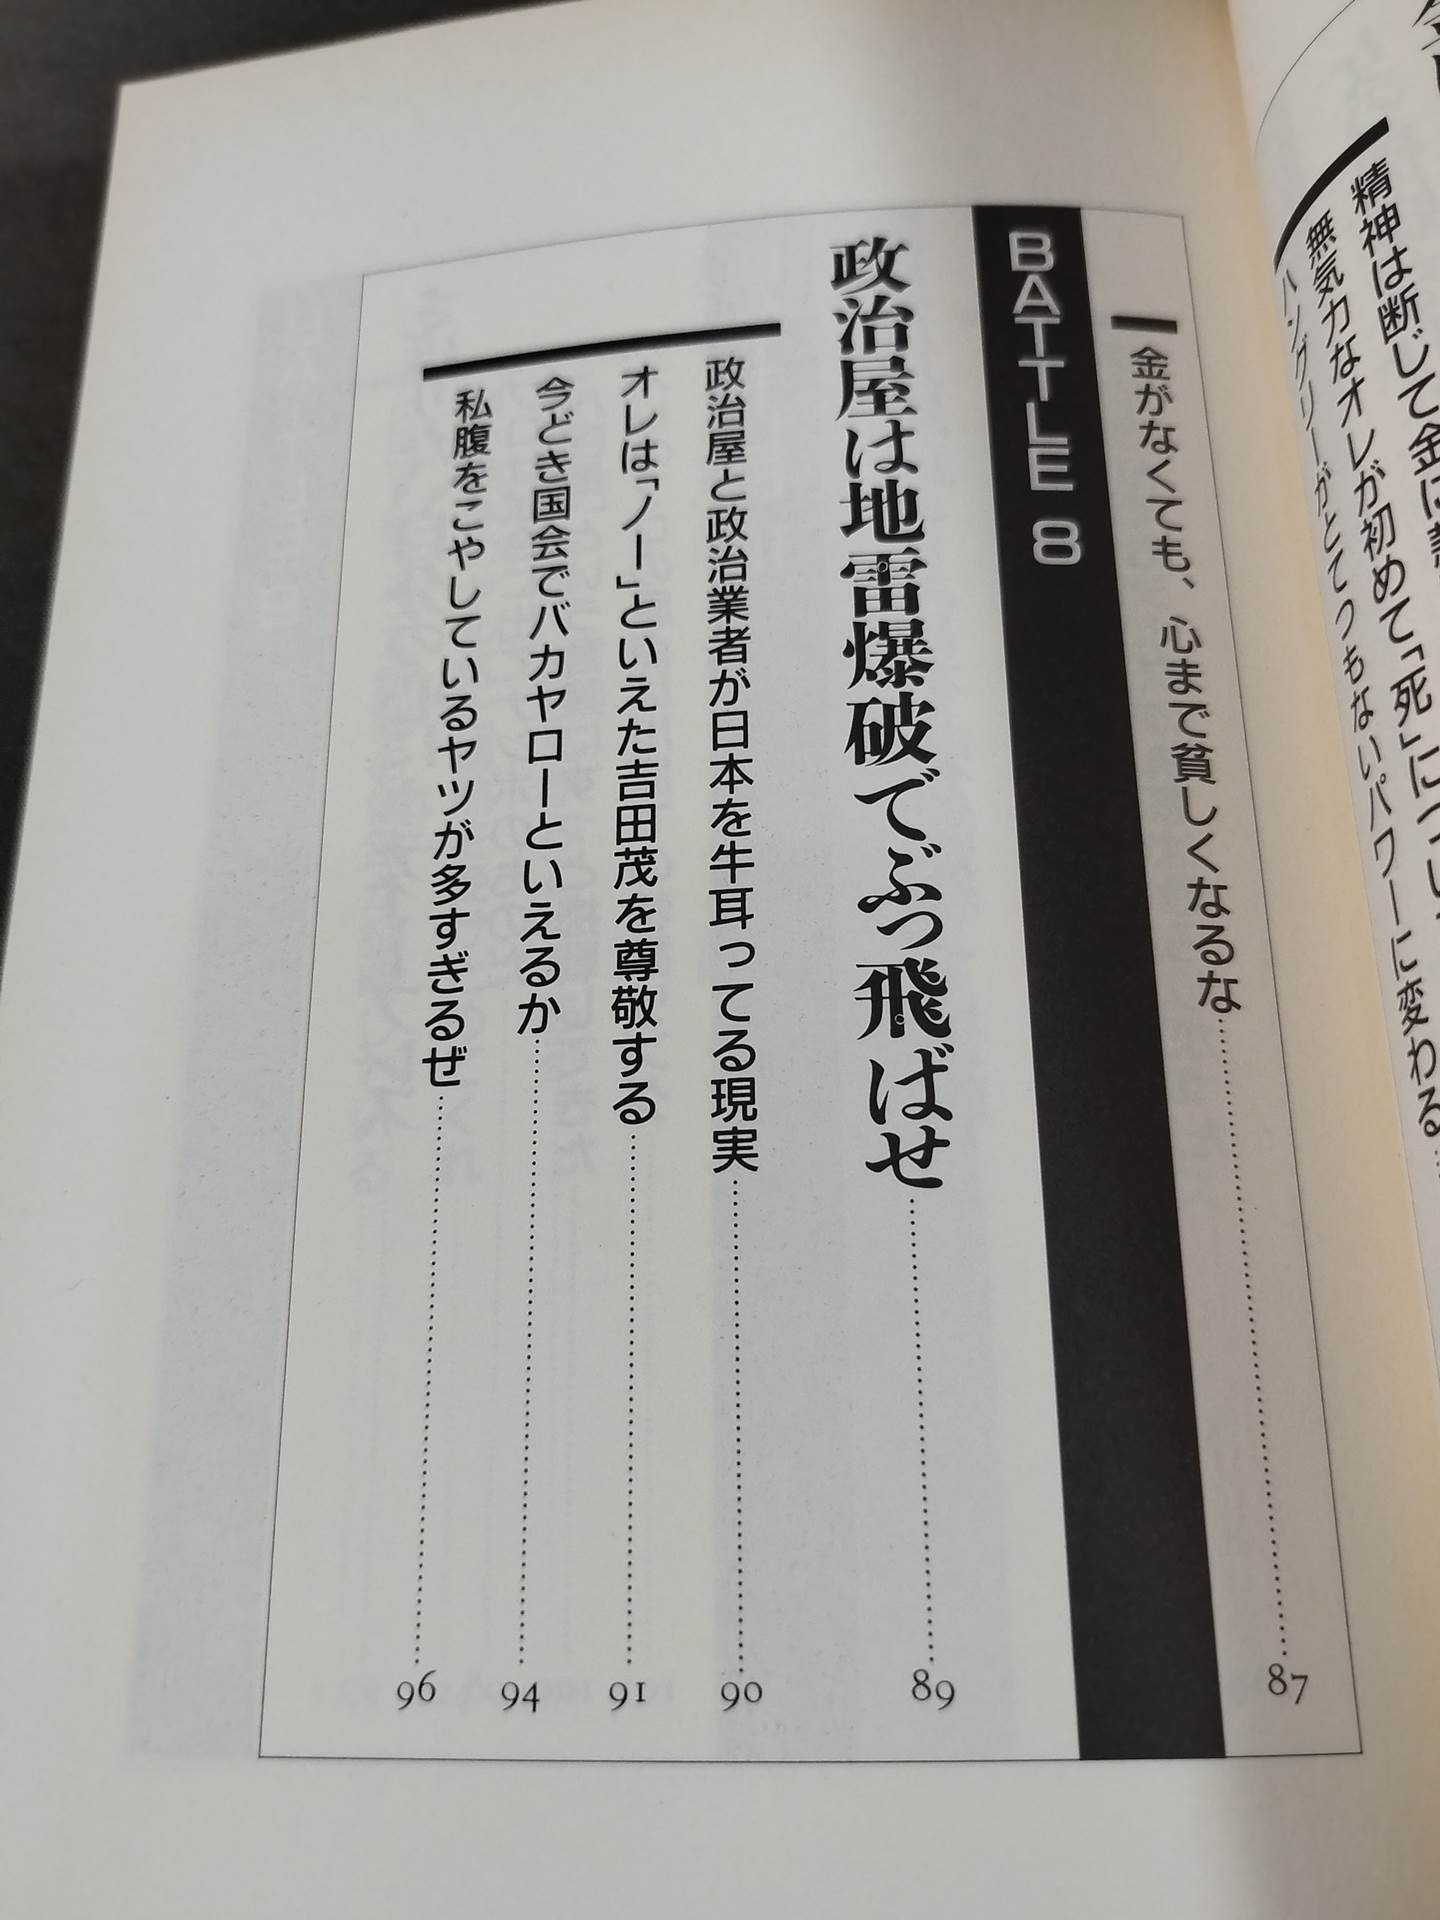 精神は断じて金に
無気力なオレが初めて「死」につい
ハングリーがとてつもないパワーに変わる……
金がなくても、心まで貧しくなるな……87
BATTLE 8
政治屋は地雷爆破でぶっ飛ばせ……89
政治屋と政治業者が日本を牛耳ってる現実……90
オレは「ノー」といえた吉田茂を尊敬する……91
今どき国会でバカヤローといえるか……94
私腹をこやしているヤツが多すぎるぜ……96